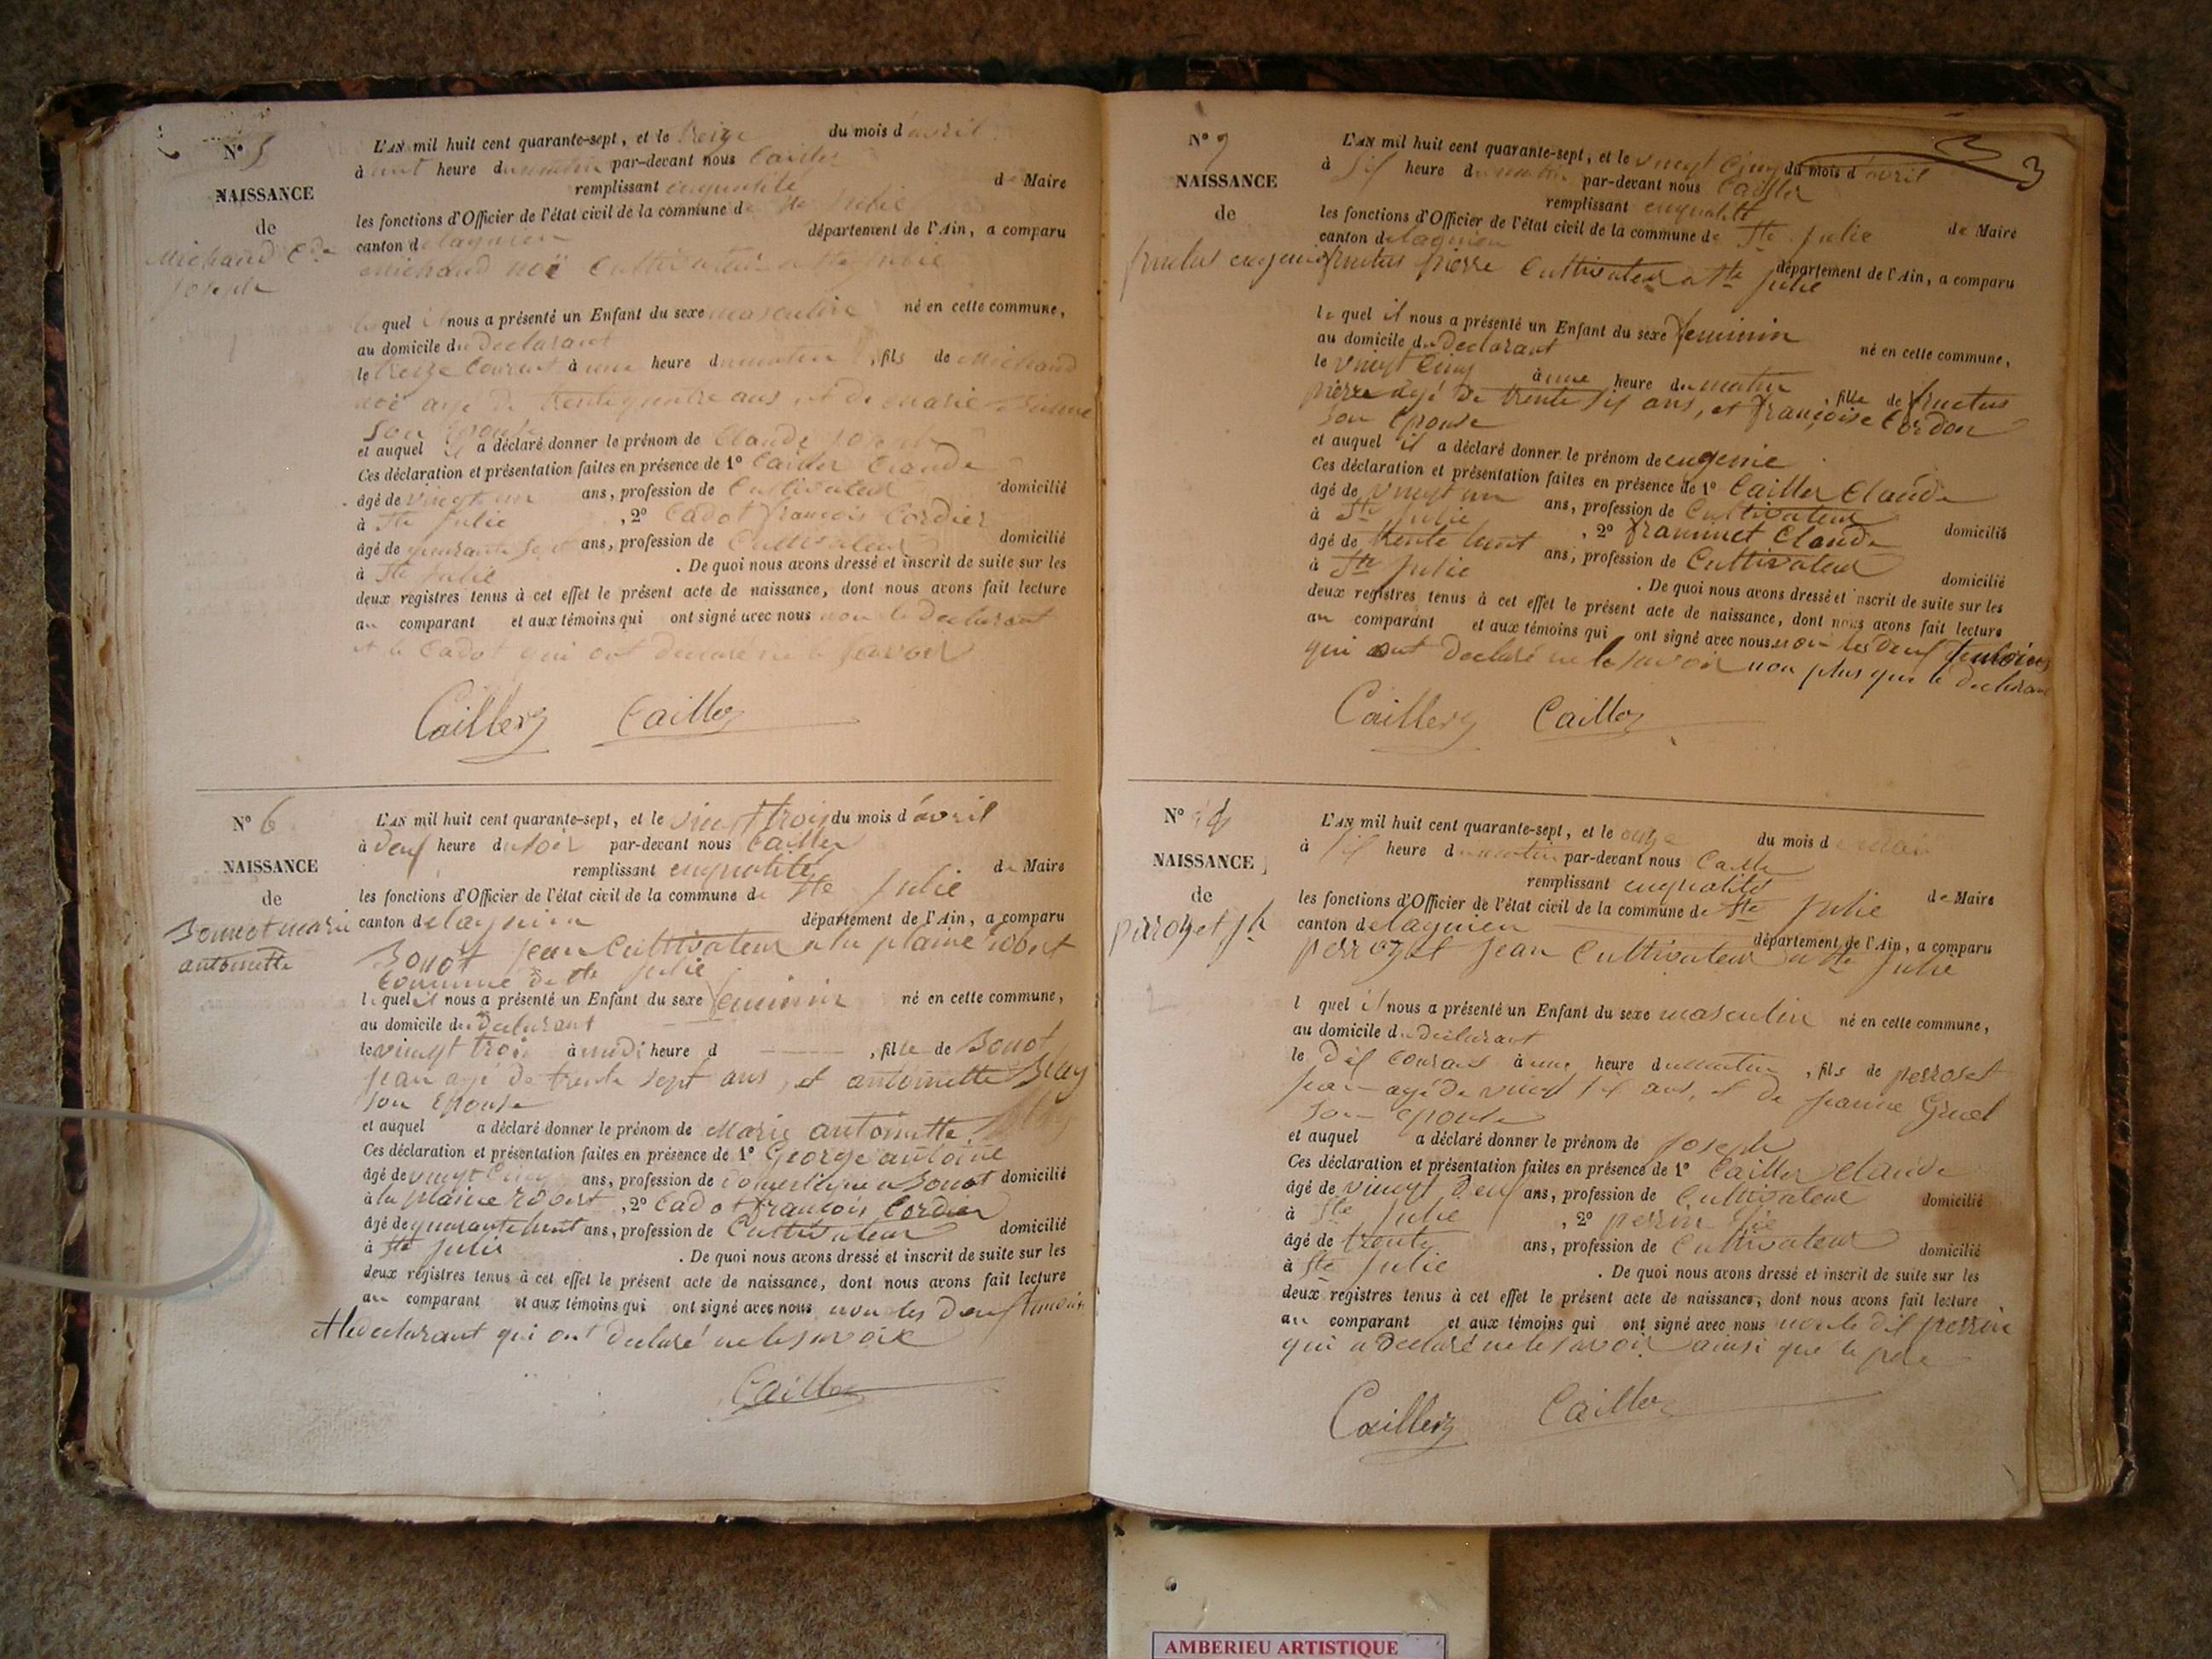 N° 5
NAISSANCE
de
Michaud Cde
Joseph
L'AN mil huit cent quarante-sept, et le treize du mois d'avril
à huit heure du matin par-devant nous Cailler
remplissant en qualité de Maire
les fonctions d'Officier de l'état civil de la commune de Ste Julie
canton de lagnieu département de l'Ain, a comparu
Michaud noë Cultivateur a Ste Julie
lequel il nous a présenté un Enfant du sexe masculin né en cette commune,
au domicile du Declarant
le treize Courant à une heure du matin, fils de Michaud
noë agé de trente quatre ans, et de marie
Son Epouse
et auquel il a déclaré donner le prénom de Claude Joseph
Ces déclaration et présentation faites en présence de 1° Cailler Claude
âgé de vingt un ans, profession de Cultivateur domicilié
à Ste Julie, 2° Cadot françois Cordier
âgé de quarante sept ans, profession de Cultivateur domicilié
à Ste Julie. De quoi nous avons dressé et inscrit de suite sur les
deux registres tenus à cet effet le présent acte de naissance, dont nous avons fait lecture
au comparant et aux témoins qui ont signé avec nous non le Declarant
et le Cadot qui ont declaré ne le savoir
Cailler Cailler
N° 6
NAISSANCE
de
Bonnot marie
antoinette
L'AN mil huit cent quarante-sept, et le vingt trois du mois d'avril
à deux heure du soir par-devant nous Cailler
remplissant en qualité de Maire
les fonctions d'Officier de l'état civil de la commune de Ste Julie
canton de lagnieu département de l'Ain, a comparu
Bonot jean Cultivateur a la plaine robert
Commune de Ste Julie
lequel il nous a présenté un Enfant du sexe feminin né en cette commune,
au domicile du Declarant
le vingt trois à midi heure d , fille de Bonot
jean agé de trente sept ans, et antoinette
son Epouse
et auquel a déclaré donner le prénom de Marie antoinette
Ces déclaration et présentation faites en présence de 1° George antoine
âgé de vingt Cinq ans, profession de domestique a Bonot domicilié
à la plaine robert, 2° Cadot françois Cordier
âgé de quarante huit ans, profession de Cultivateur domicilié
à Ste Julie. De quoi nous avons dressé et inscrit de suite sur les
deux registres tenus à cet effet le présent acte de naissance, dont nous avons fait lecture
au comparant et aux témoins qui ont signé avec nous non les deux temoins
et le declarant qui ont declaré ne le savoir
Cailler
3
N° 7
NAISSANCE
de
fructus eugenie
L'AN mil huit cent quarante-sept, et le vingt Cinq du mois d'avril
à six heure du matin par-devant nous Cailler
remplissant en qualité de Maire
les fonctions d'Officier de l'état civil de la commune de Ste Julie
canton de lagnieu département de l'Ain, a comparu
fructus pierre Cultivateur a Ste Julie
lequel il nous a présenté un Enfant du sexe feminin né en cette commune,
au domicile du Declarant
le vingt Cinq à une heure du matin, fille de fructus
pierre agé de trente six ans, et françoise Cordon
son epouse
et auquel il a déclaré donner le prénom de eugenie
Ces déclaration et présentation faites en présence de 1° Cailler Claude
âgé de vingt un ans, profession de Cultivateur domicilié
à Ste Julie, 2° Claude
âgé de trente huit ans, profession de Cultivateur domicilié
à Ste Julie. De quoi nous avons dressé et inscrit de suite sur les
deux registres tenus à cet effet le présent acte de naissance, dont nous avons fait lecture
au comparant et aux témoins qui ont signé avec nous non les deux temoins
qui ont declaré ne le savoir non plus que le declarant
Cailler Cailler
N°
NAISSANCE
de
perrozet jh
L'AN mil huit cent quarante-sept, et le onze du mois de mai
à six heure du matin par-devant nous Cailler
remplissant en qualité de Maire
les fonctions d'Officier de l'état civil de la commune de Ste Julie
canton de lagnieu département de l'Ain, a comparu
perrozet jean Cultivateur a Ste Julie
l quel il nous a présenté un Enfant du sexe masculin né en cette commune,
au domicile du declarant
le dix courant à une heure du matin, fils de perroset
jean agé de vingt six ans, et de jeanne
son epouse
et auquel a déclaré donner le prénom de joseph
Ces déclaration et présentation faites en présence de 1° Cailler Claude
âgé de vingt deux ans, profession de Cultivateur domicilié
à Ste Julie, 2° perrin
âgé de trente ans, profession de Cultivateur domicilié
à Ste Julie. De quoi nous avons dressé et inscrit de suite sur les
deux registres tenus à cet effet le présent acte de naissance, dont nous avons fait lecture
au comparant et aux témoins qui ont signé avec nous non le dit perrin
qui a declaré ne le savoir ainsi que le pere
Cailler Cailler
AMBERIEU ARTISTIQUE